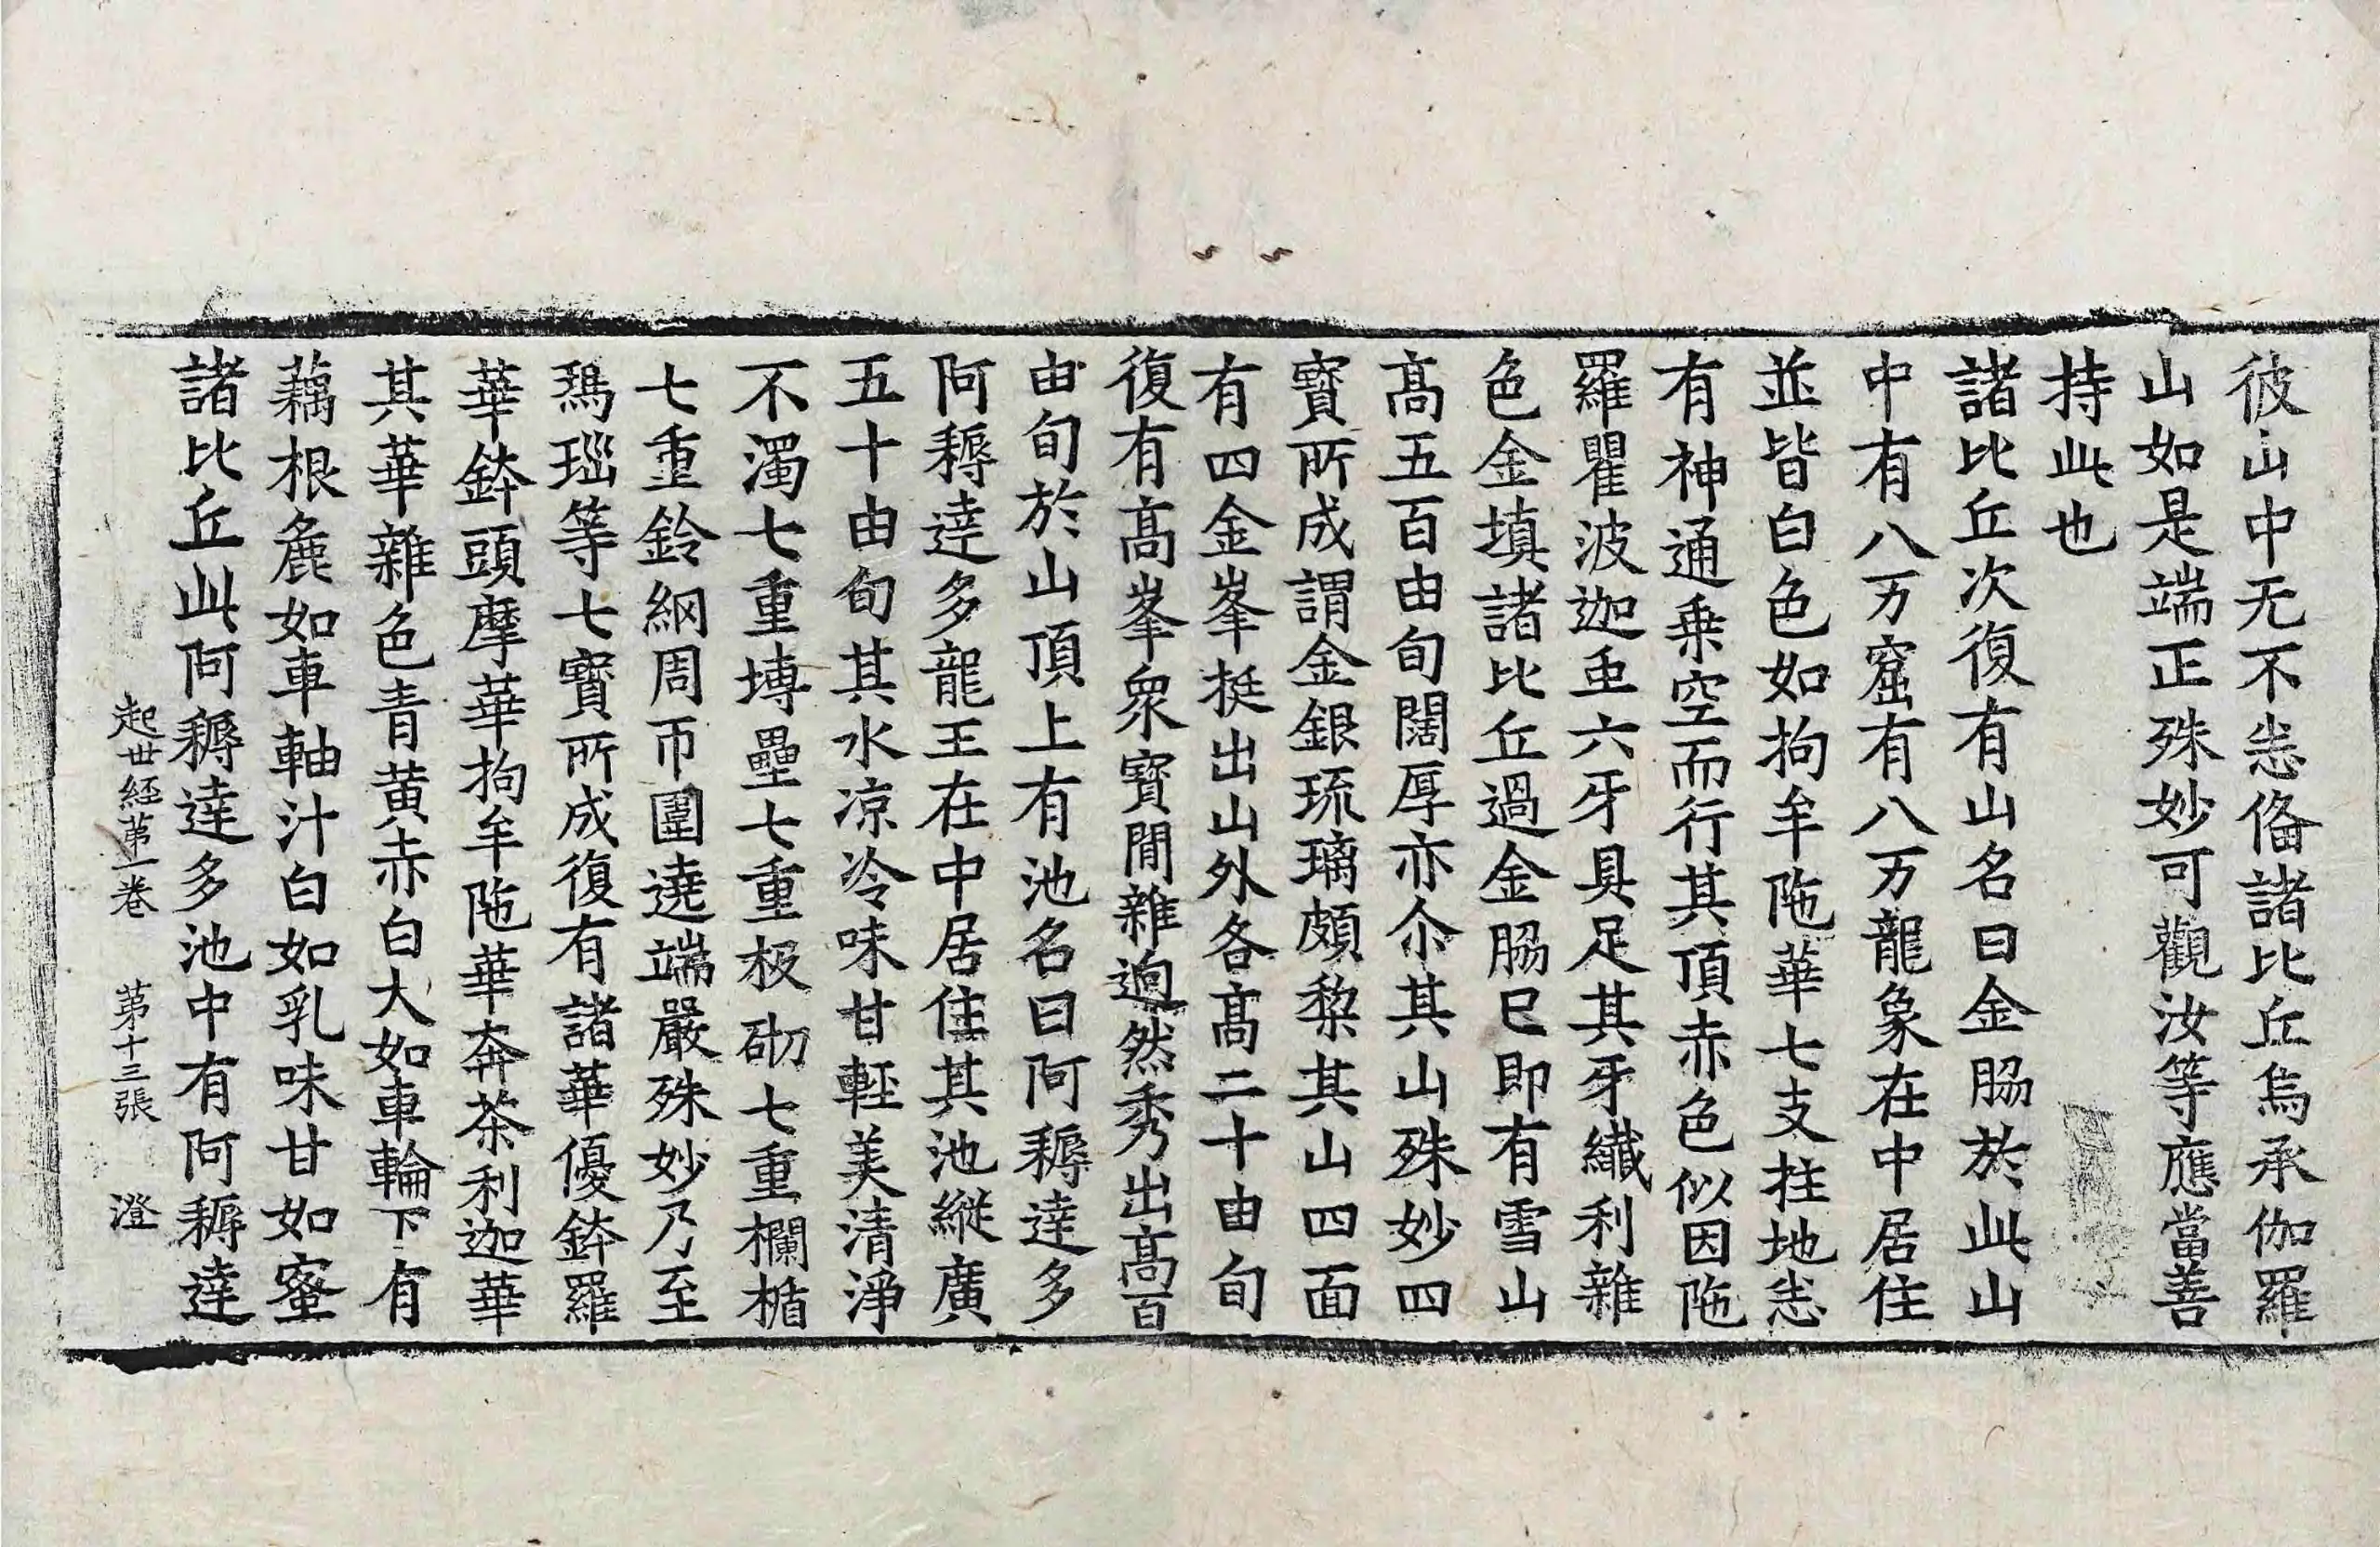 彼山中无不悉俻諸比丘烏承伽羅
山如是端正殊妙可觀汝等應當善
持此也
諸比丘次復有山名曰金脇於此山
中有八万窟有八万龍象在中居住
並皆白色如拘牟陁華七支拄地悉
有神通乗空而行其頂赤色似因陁
羅瞿波迦䖝六牙具足其牙纎利雜
色金填諸比丘過金脇已即有雪山
髙五百由旬闊厚亦尒其山殊妙四
寳所成謂金銀琉璃頗黎其山四面
有四金峯挺出山外各髙二十由旬
復有髙峯衆寳間雜逈然秀出髙百
由旬於山頂上有池名曰阿耨達多
阿耨達多龍王在中居住其池縱廣
五十由旬其水凉冷味甘輕美清淨
不濁七重塼壘七重板砌七重欄楯
七重鈴網周帀圍遶端嚴殊妙乃至
瑪瑙等七寳所成復有諸華優鉢羅
華鉢頭摩華拘牟陁華奔茶利迦華
其華雜色青黄赤白大如車輪下有
藕根麁如車軸汁白如乳味甘如蜜
諸比丘此阿耨達多池中有阿耨達
起世経苐一卷 苐十三張 澄